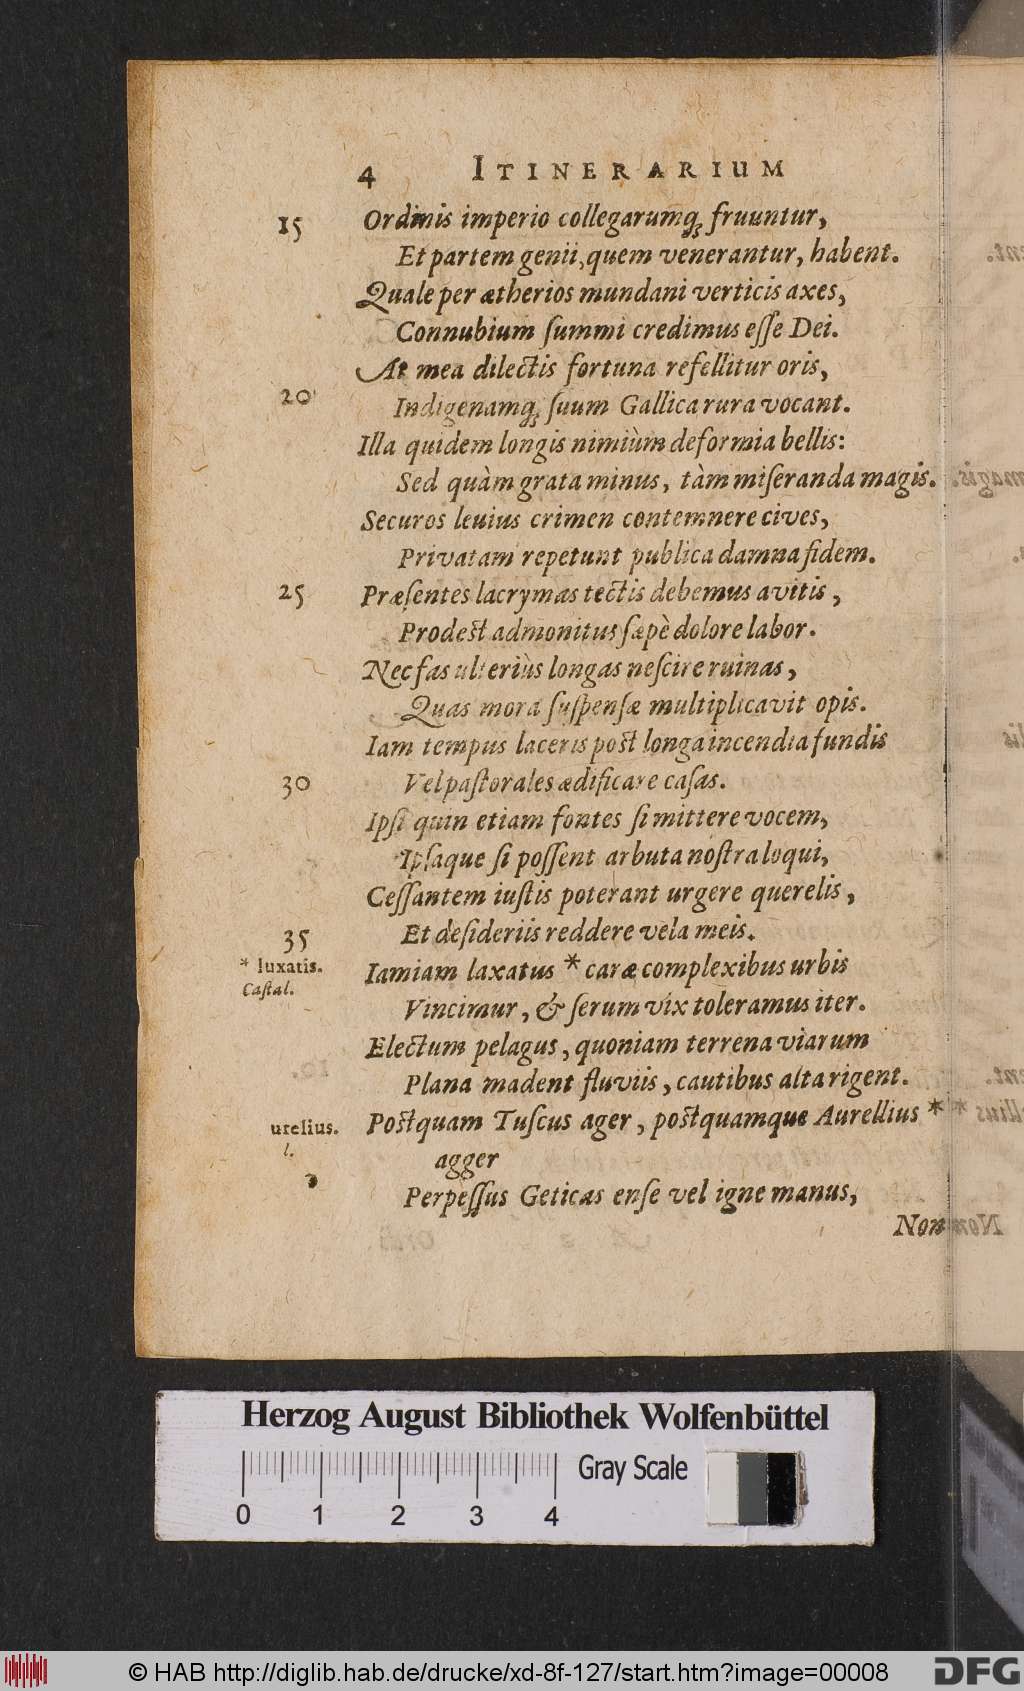 4 ITINERARIUM
15 Ordinis imperio collegarumq́; fruuntur,
Et partem genii, quem venerantur, habent.
Quale per ætherios mundani verticis axes,
Connubium ſummi credimus eſſe Dei.
At mea dilectis fortuna refellitur oris,
20 Indigenamq́; ſuum Gallica rura vocant.
Illa quidem longis nimiùm deformia bellis:
Sed quàm grata minus, tàm miſeranda magis.
Securos leuius crimen contemnere cives,
Privatam repetunt publica damna fidem.
25 Præſentes lacrymas tectis debemus avitis,
Prodest admonitus ſæpè dolore labor.
Nec fas ulteriùs longas neſcire ruinas,
Quas mora ſuſpenſæ multiplicavit opis.
Iam tempus laceris post longa incendia fundis
30 Vel paſtorales ædificare caſas.
Ipſi quin etiam fontes ſi mittere vocem,
Ipſaque ſi poſſent arbuta noſtra loqui,
Ceſſantem iuſtis poterant urgere querelis,
Et deſideriis reddere vela meis.
35
* luxatis.
Caſtal.
Iamiam laxatus * caræ complexibus urbis
Vincimur, & ſerum vix toleramus iter.
Electum pelagus, quoniam terrena viarum
Plana madent fluviis, cautibus alta rigent.
Postquam Tuſcus ager, postquamque Aurellius *
urelius.
l.
agger
Perpeſſus Geticas enſe vel igne manus,
Non
Herzog August Bibliothek Wolfenbüttel
Gray Scale
0 1 2 3 4
© HAB http://diglib.hab.de/drucke/xd-8f-127/start.htm?image=00008
DFG